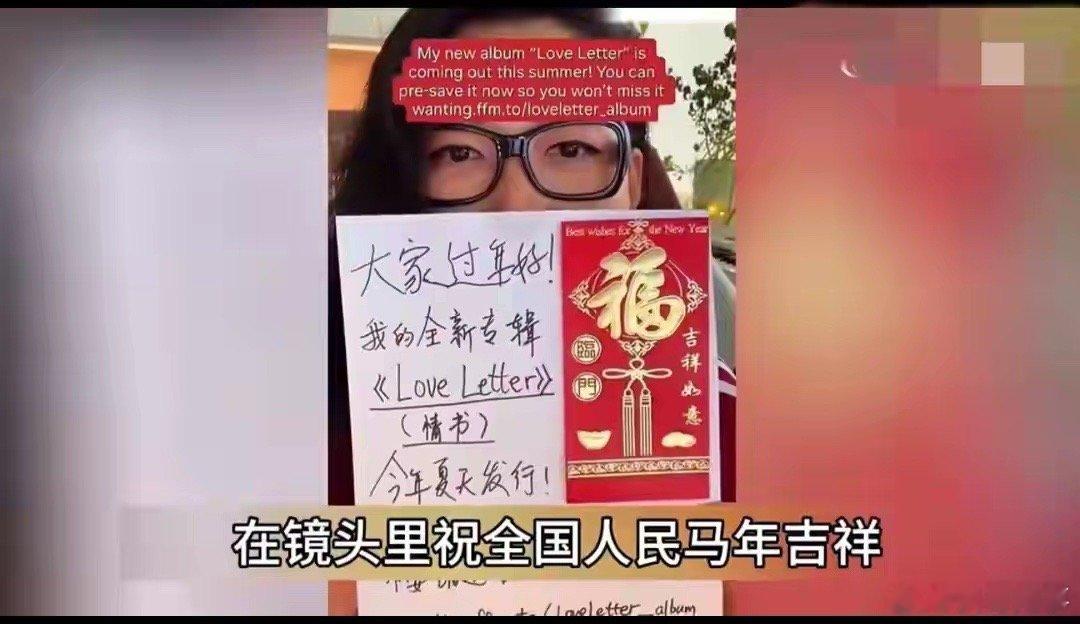 My new album "Love Letter" is
coming out this summer! You can
pre-save it now so you won't miss it
wanting.ffm.to/loveletter_album
大家过年好!
我的全新专辑
《Love Letter》
(情书)
今年夏天发行!
Best wishes for the New Year
福
臨
門
吉祥如意
在镜头里祝全国人民马年吉祥
to/loveletter_album